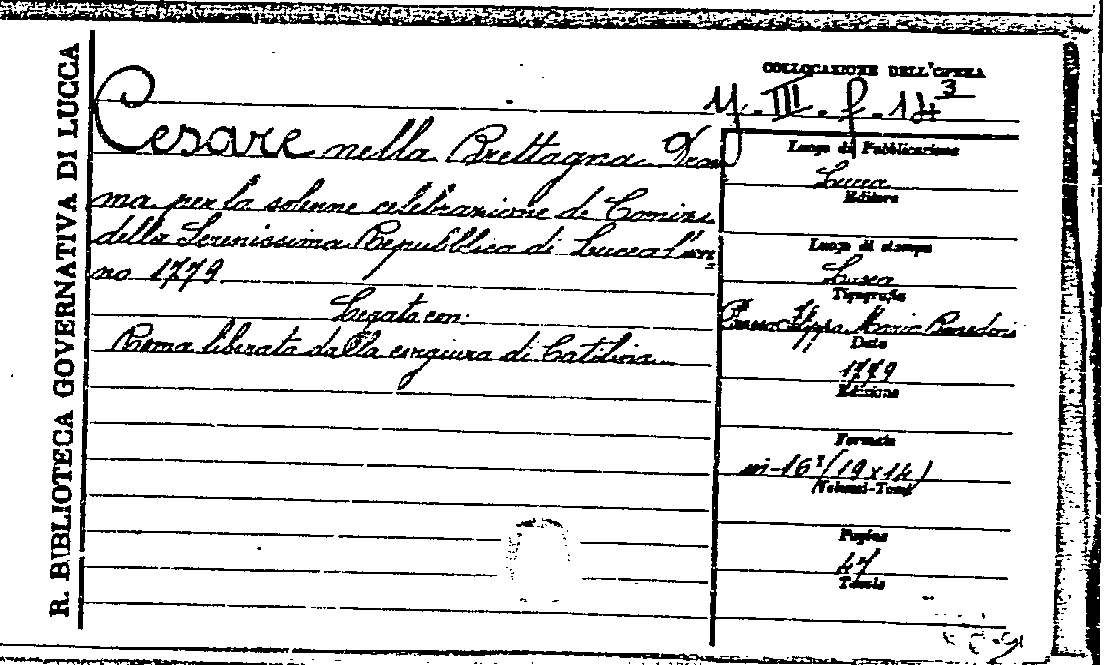 R. BIBLIOTECA GOVERNATIVA DI LUCCA
COLLOCAZIONE DELL'OPERA
Y. III. f. 14 3
Cesare nella Brettagna Dram
ma per la solenne celebrazione de' Comizi
della Serenissima Repubblica di Lucca l'an
no 1779
Legato con:
Roma liberata dalla congiura di Catilina
Luogo di Pubblicazione
Lucca
Editore
Luogo di stampa
Lucca
Tipografia
Presso Filippo Maria Benedini
Data
1779
Edizione
Formato
in-16º (19x14)
Volumi-Tomi
Pagine
47
Tavole